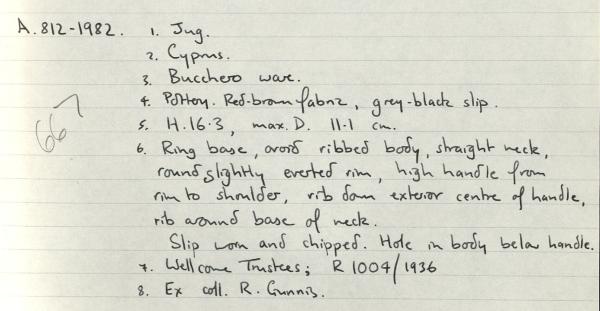 A.812-1982. 1. Jug.
2. Cyprus.
3. Bucchero ware.
4. Pottery. Red-brown fabric, grey-black slip.
5. H.16.3, max. D. 11.1 cm.
667
6. Ring base, ovoid ribbed body, straight neck,
round slightly everted rim, high handle from
rim to shoulder, rib down exterior centre of handle,
rib around base of neck.
Slip worn and chipped. Hole in body below handle.
7. Wellcome Trustees; R 1004/1936
8. Ex coll. R. Gunnis.